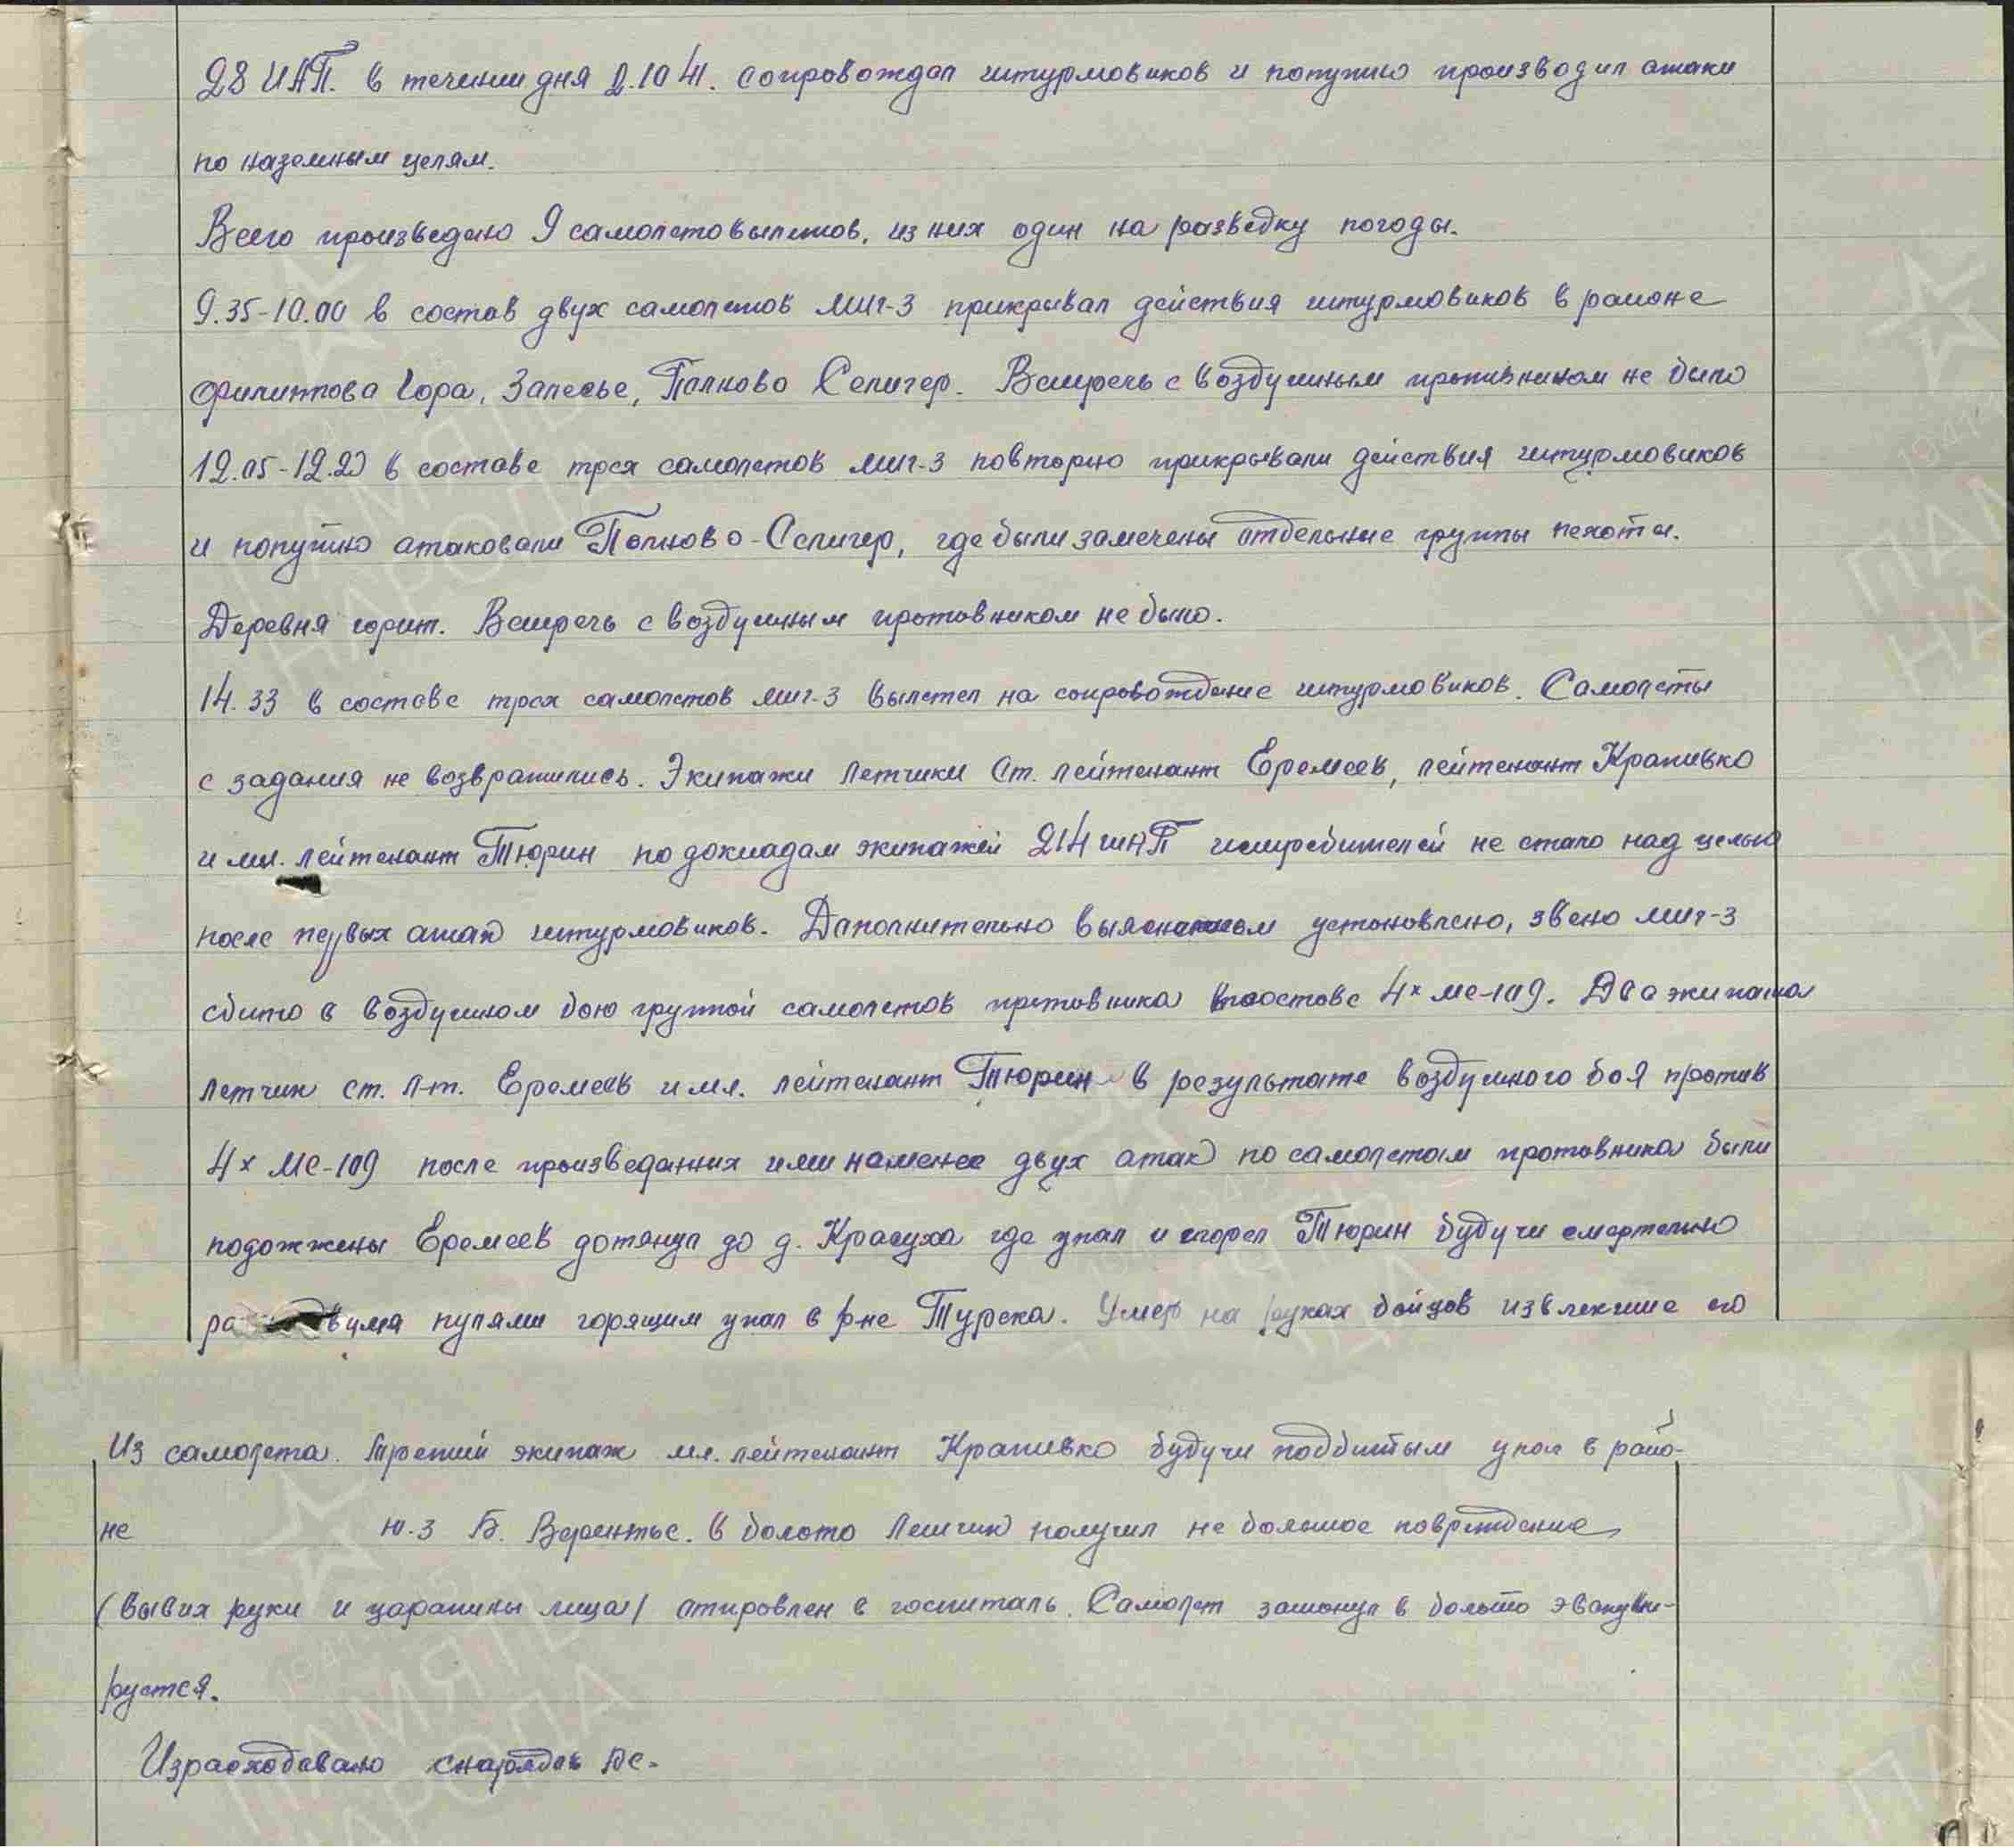 28 ИАП. в течении дня 2.10 41. сопровождал штурмовиков и попутно производил атаки
по наземным целям.
Всего произведено 9 самолетовылетов, из них один на разведку погоды.
9.35-10.00 в состав двух самолетов МИГ-3 прикрывал действия штурмовиков в районе
Филиппова Гора, Залесье, Полново Селигер. Встречь с воздушным противником не было
12.05-12.20 в составе трех самолетов МИГ-3 повторно прикрывали действия штурмовиков
и попутно атаковали Полново-Селигер, где были замечены отдельные группы пехоты.
Деревня горит. Встречь с воздушным противником не было.
14.33 в составе трех самолетов МИГ-3 вылетел на сопровождение штурмовиков. Самолеты
с задания не возвратились. Экипажи летчики Ст. лейтенант Еремеев, лейтенант Крапивко
и мл. лейтенант Тюрин по докладам экипажей 214 ШАП истребителей не стало над целью
после первых атак штурмовиков. Дополнительно установлено, звено МИГ-3
сбито в воздушном бою группой самолетов противника в составе 4х МЕ-109. Два экипажа
летчик ст. л-т. Еремеев и мл. лейтенант Тюрин в результате воздушного боя против
4х МЕ-109 после произведенных ими наменее двух атак по самолетам противника были
подожжены Еремеев дотянул до д. Красуха где упал и сгорел Тюрин будучи смертельно
пулями горящим упал в р-не Турска. Умер на руках бойцов извлекшие его
Из самолета. Третий экипаж мл. лейтенант Крапивко будучи подбитым упал в райо-
не ю.з Б. Веретье. в болото Летчик получил не большое повреждение
(вывих руки и царапины лица) отправлен в госпиталь. Самолет затонул в болото эвакуи-
руется.
Израсходовано снарядов РС-